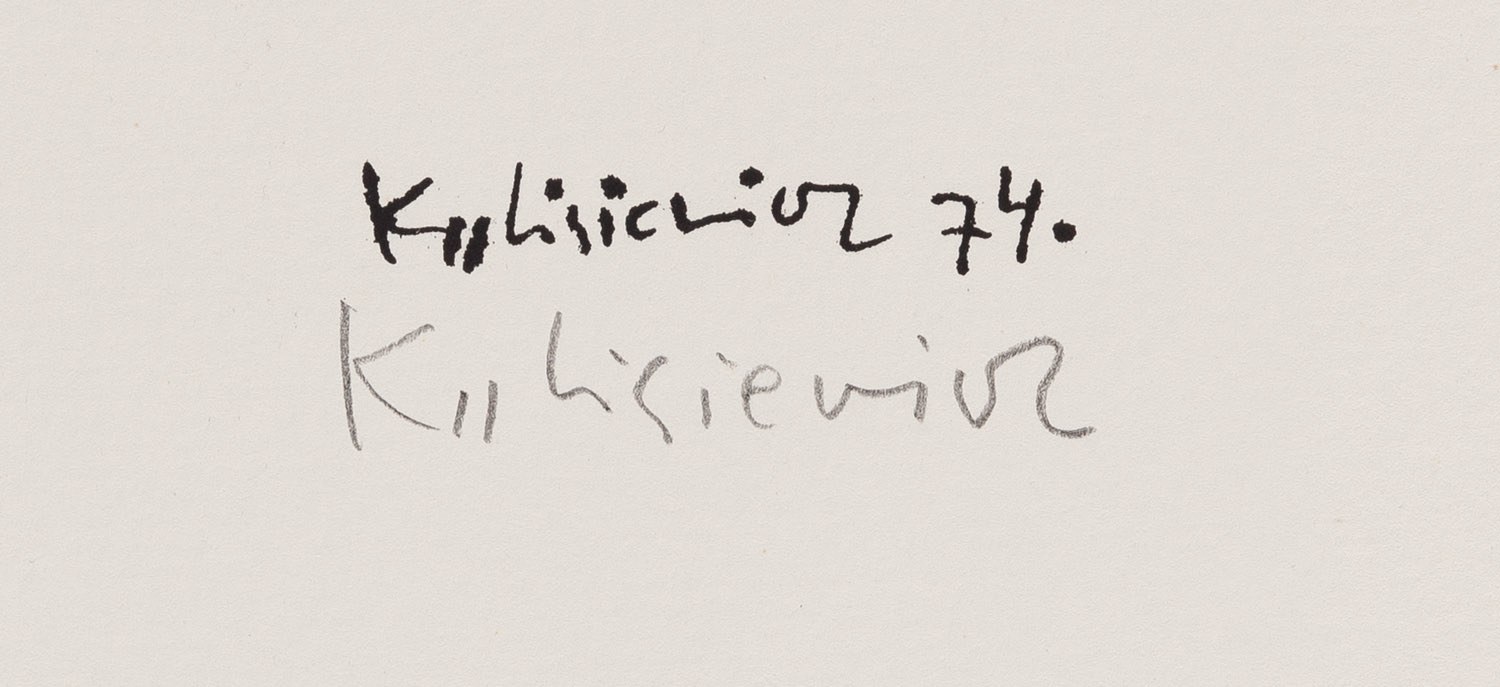 Kulisiewicz 74.
Kulisiewicz